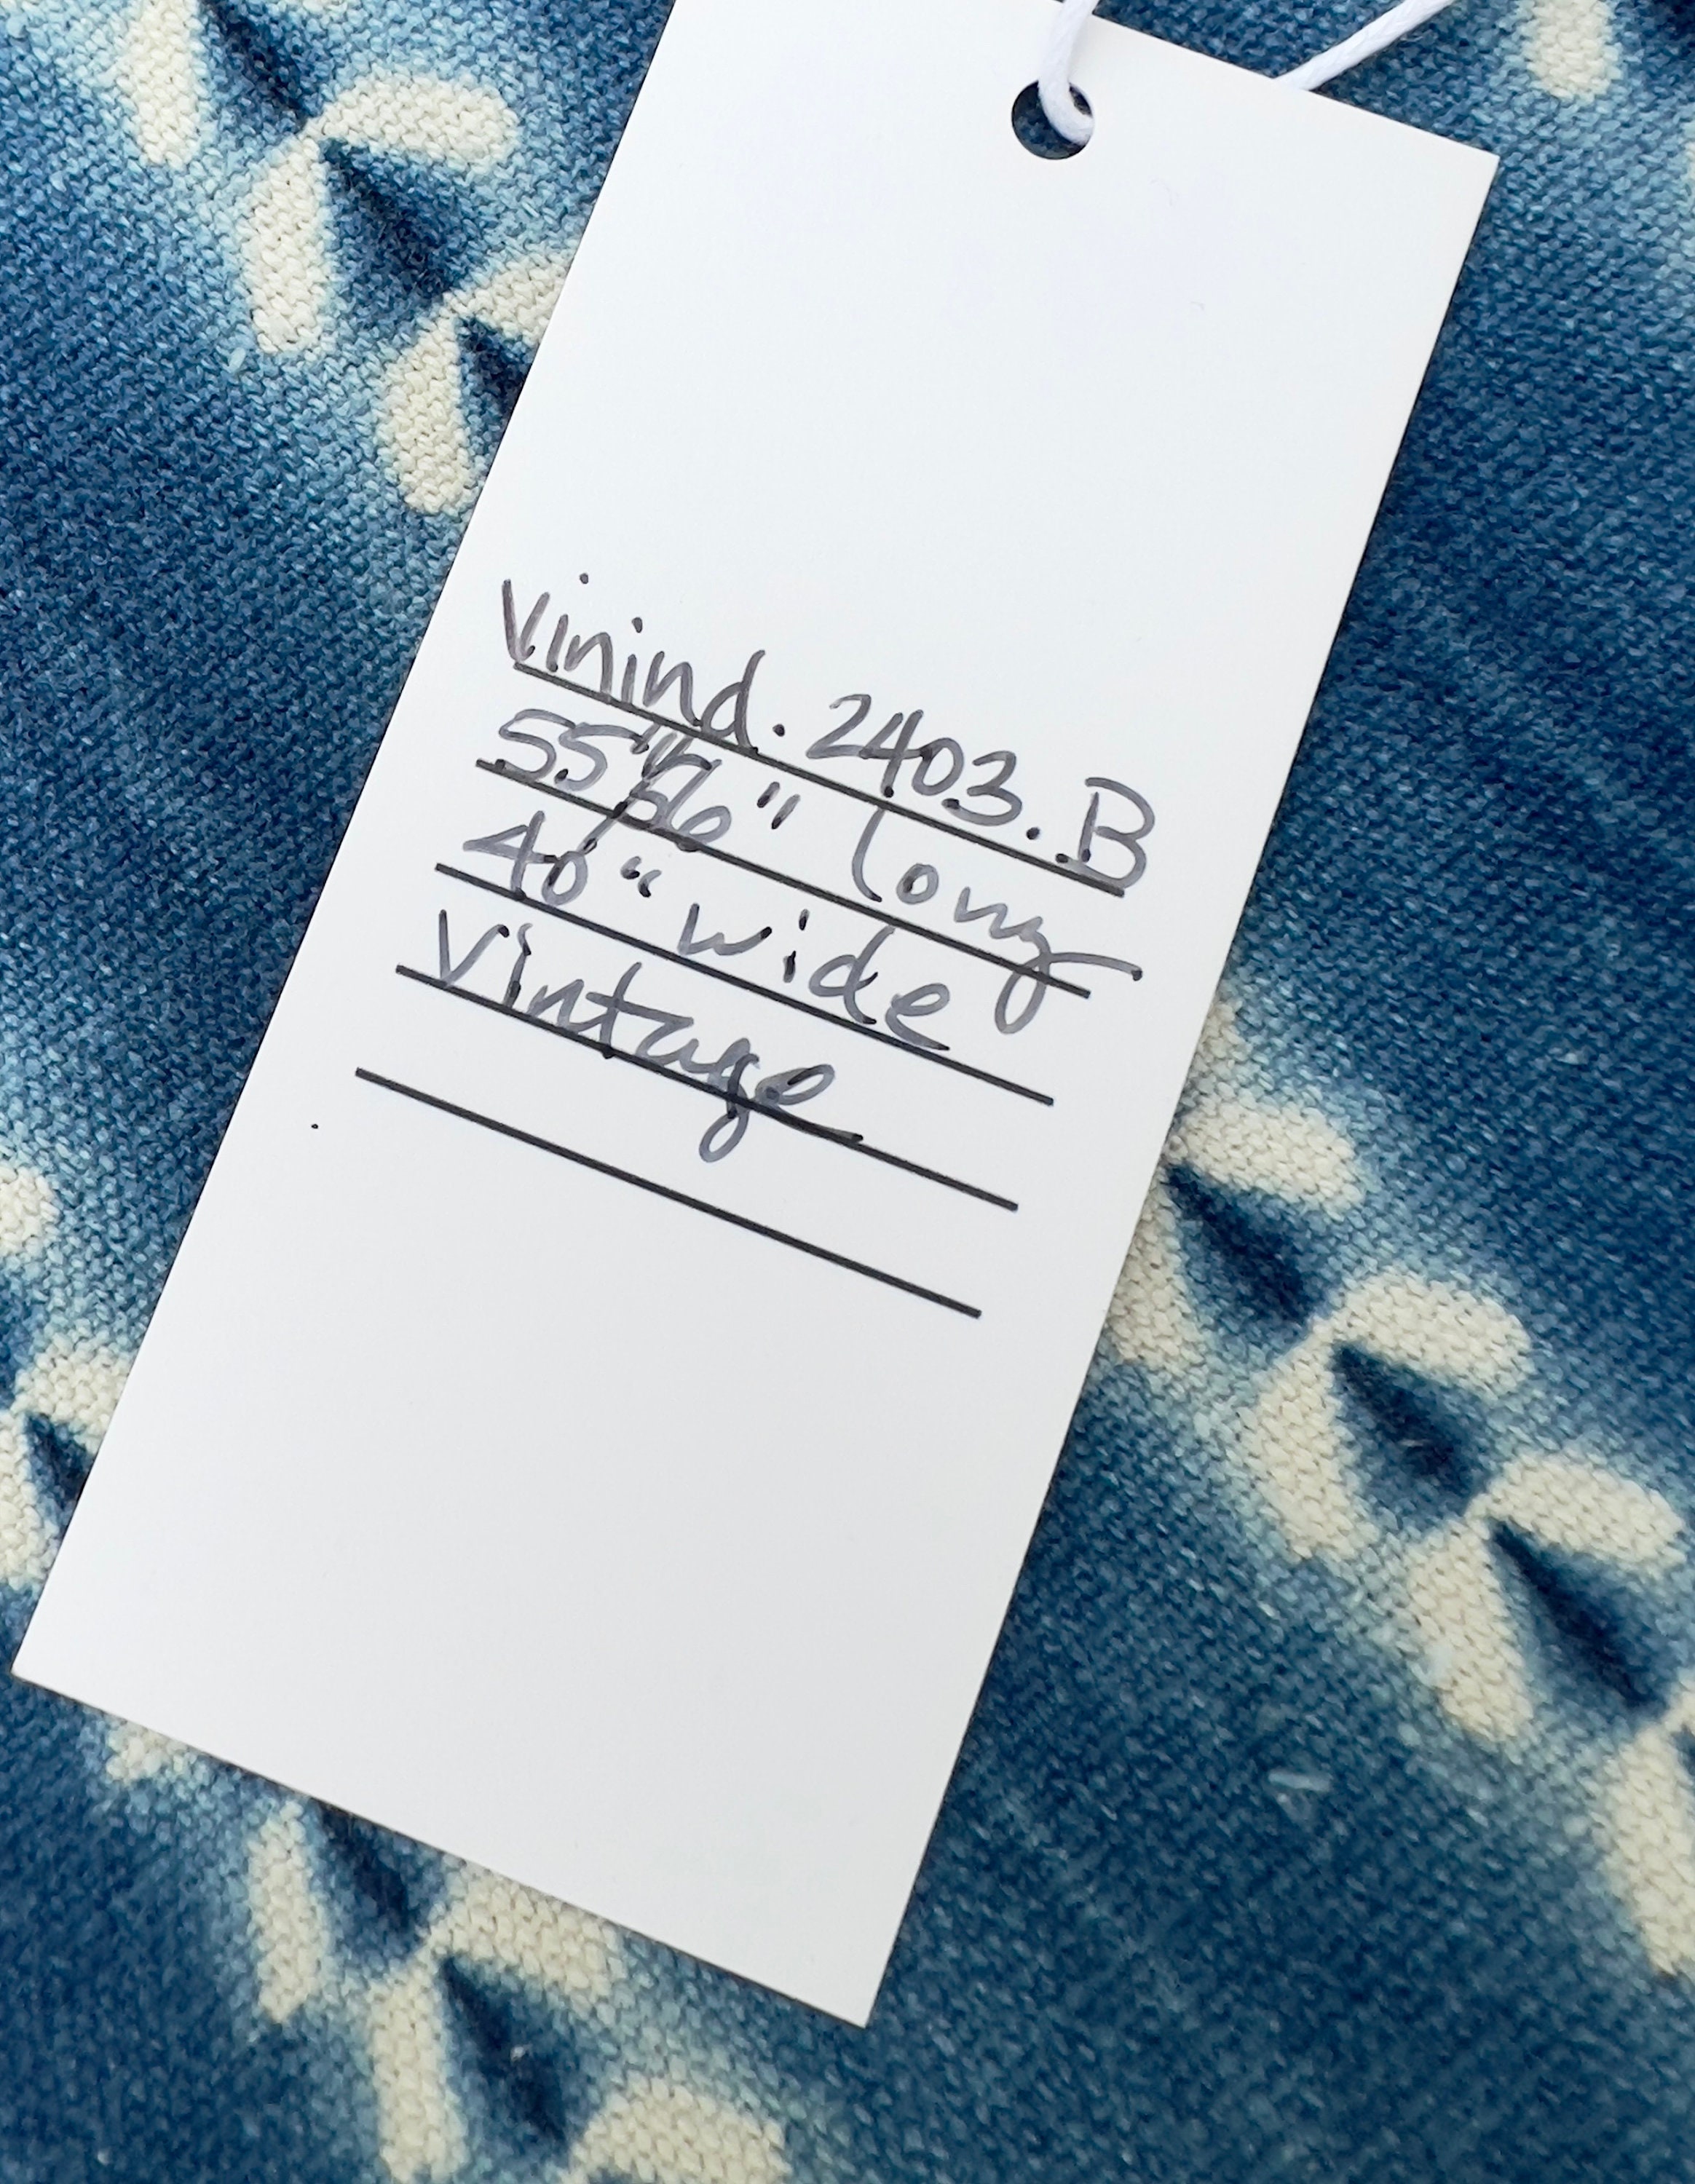 Vinind. 2403. B
55"/56" long
40" wide
Vintage